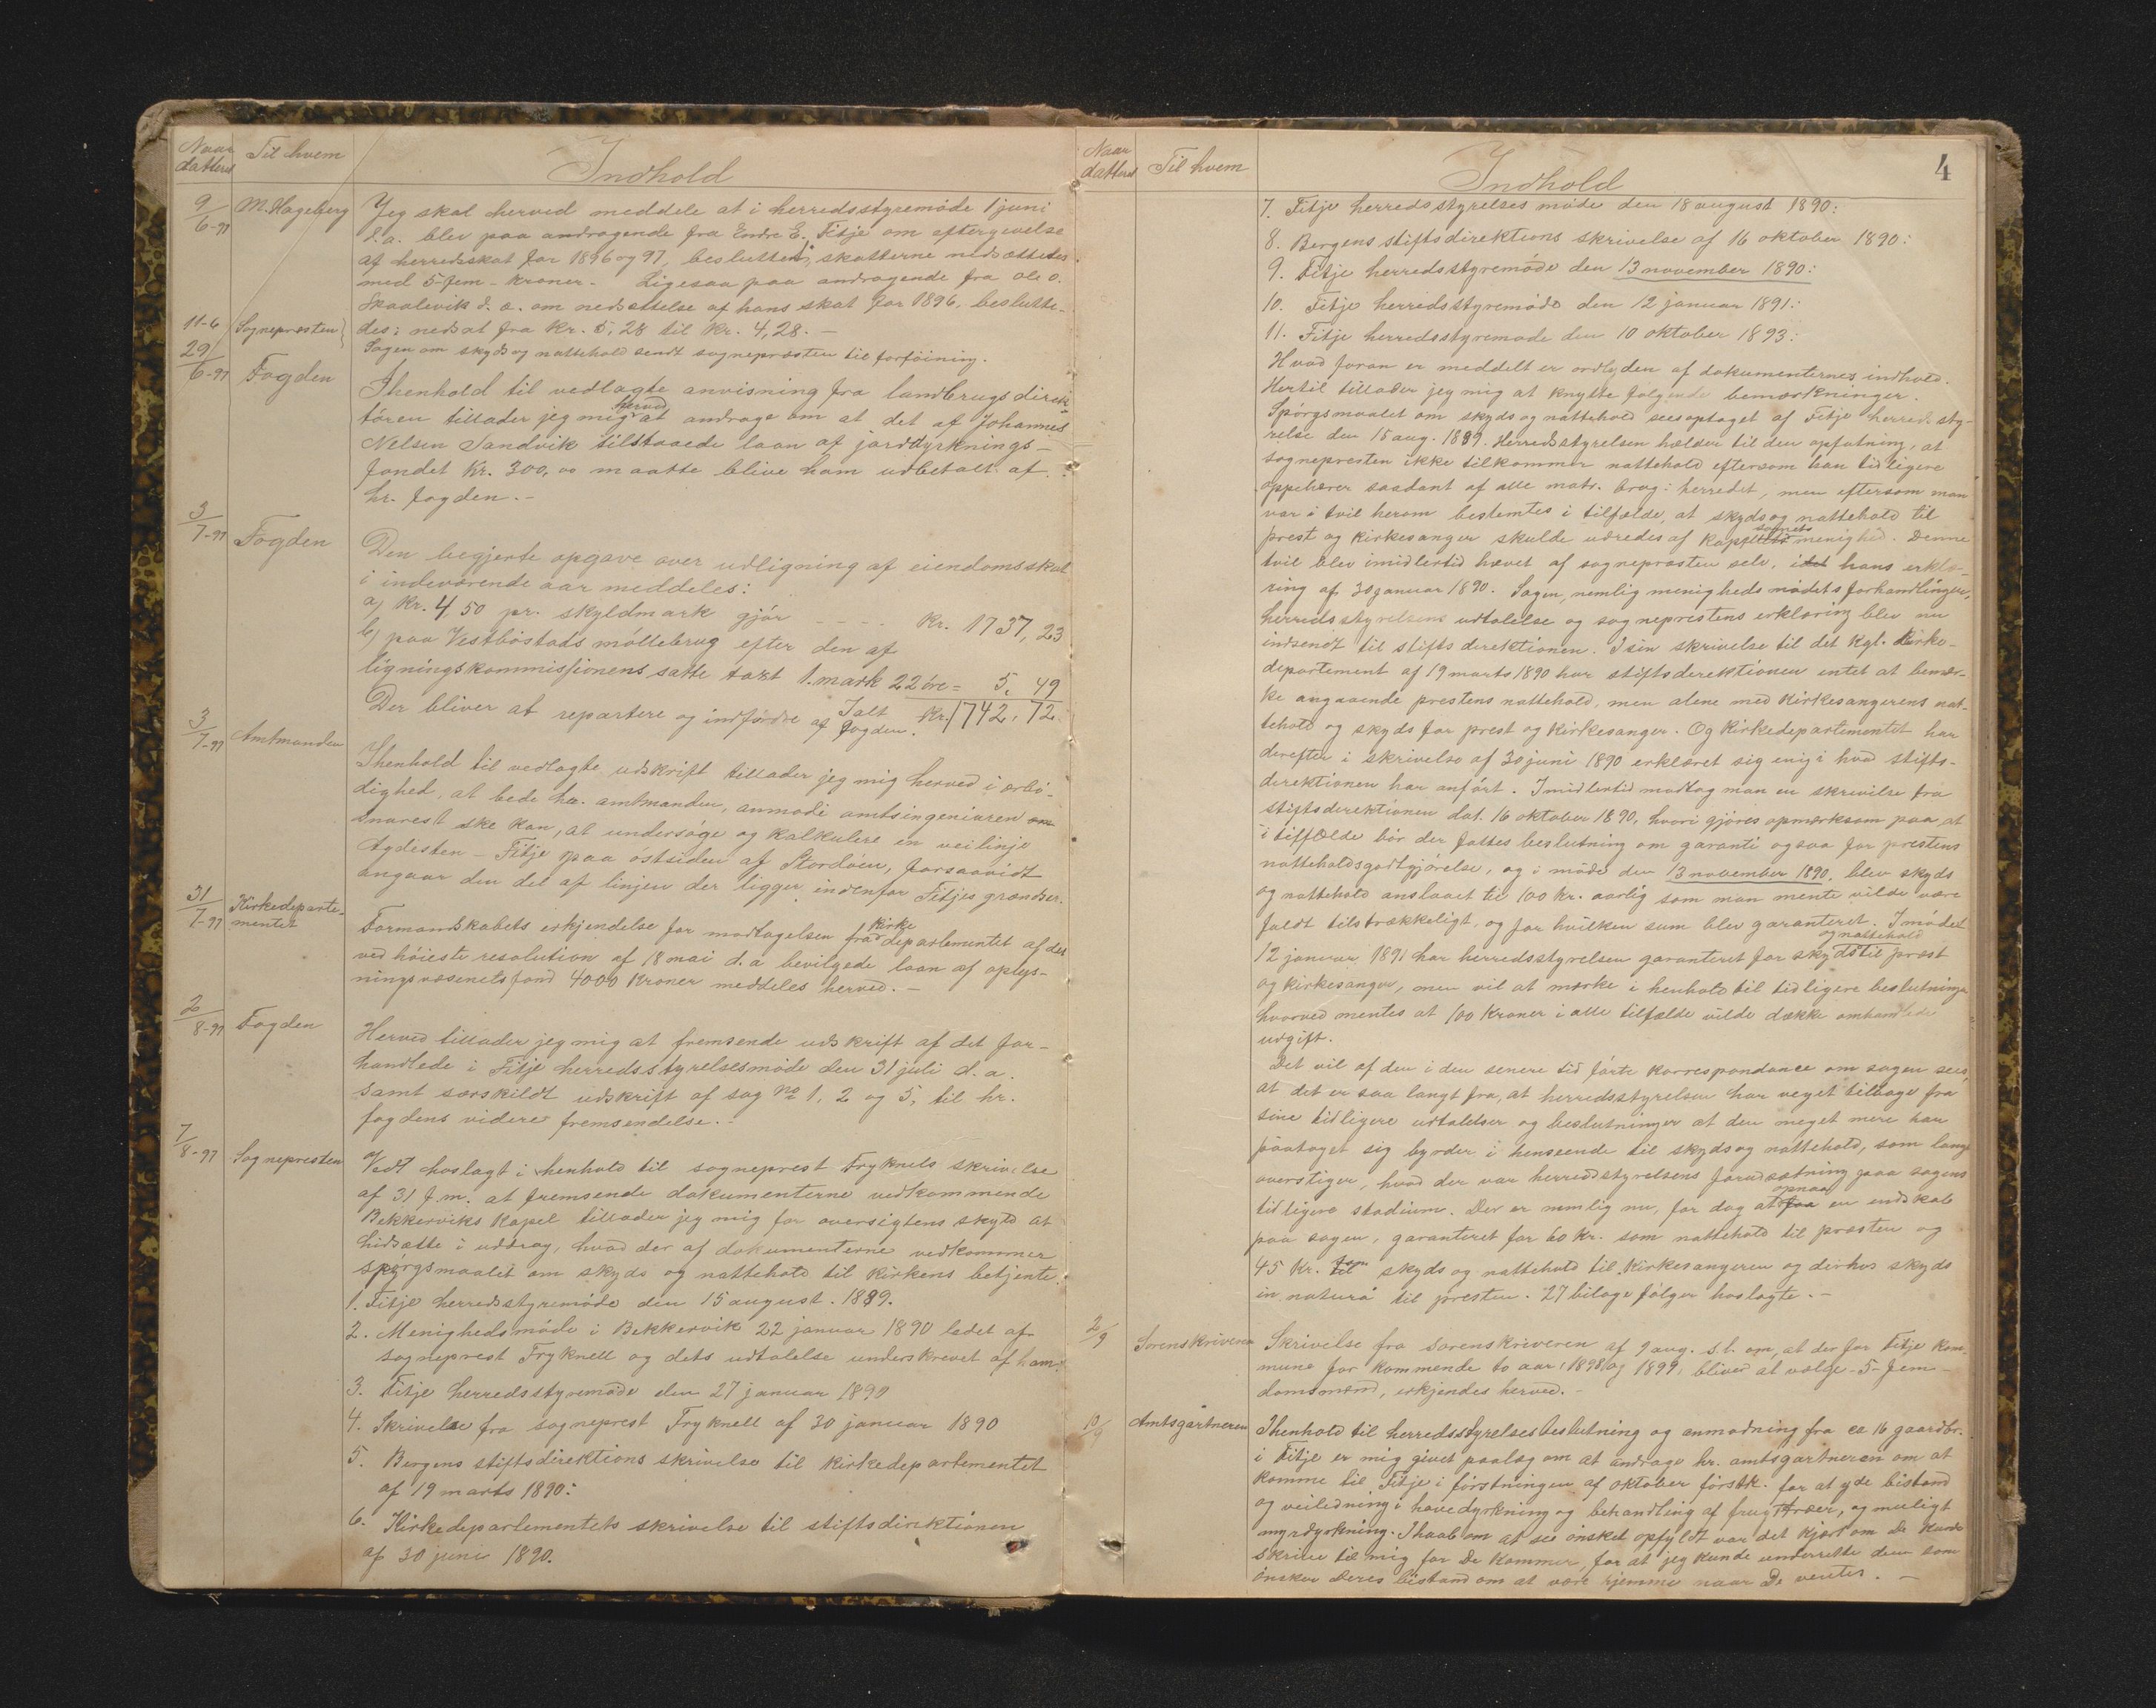 Naar datteret Til hvem Indhold
9/6-97 M. Hageberg Jeg skal herved meddele at i herredsstyremöde 1 juni
d.a. blev paa andragende fra Endre E. Fitje om eftergivelse
af herredsskat for 1896 og 97, besluttet, skatterne nedsættes
med 5-fem- kroner. - Ligesaa paa andragende fra Ole O.
Skaalevik d.a. om nedsettelse af hans skat for 1896. beslutte-
des: nedsat fra Kr. 5,28 til Kr. 4,28. -
11-6 Sognepræsten Sagen om skyds og nattehold sendt sognepræsten til forföining.
29/6-97 Fogden Ihenhold til vedlagte anvisning fra landbrugsdirek-
tören tillader jeg mig herved at andrage om at det af Johannes
Nelsen Sandvik tilstaaede laan af jorddyrknings-
fondet Kr. 300,00 maatte blive ham udbetalt af
hr. fogden. -
3/7-97 Fogden Den begjerte opgave over udligning af eiendomsskat
i indeværende aar meddeles:
a) Kr. 4 50 pr. skyldmark gjör - - - - Kr. 1737,23
b) paa Vestböstads möllebrug efter den af
ligningskommissjionens satte taxt 1. mark 22 öre = 5, 49
Ialt Kr. 1742,72
Der bliver at repartere og indfordre af fogden.
3/7-97 Amtmanden Ihenhold til vedlagte udskrift tillader jeg mig herved i ærbö-
dighed, at bede hr. amtmanden, anmode amtsingeniøren om
snarest ske kan, at undersöge og kalkulere en veilinje
Agdesten - Fitje paa östsiden af Stordöen, forsaavidt
angaar den del af linjen der ligger indenfor Fitjes grændser.
31/7-97 Kirkedeparte-
mentet Formandskabets erkjendelse for modtagelsen fra kirkedepartementet af det
ved höieste resolution af 18 mai d.a bevilgede laan af oplys-
ningsvæsenets fond 4000 Kroner meddeles herved. -
2/8-97 Fogden Herved tillader jeg mig at fremsende udskrift af det for-
handlede i Fitje herredsstyrelsesmöde den 31 juli d.a.
samt særskildt udskrift af sag No 1, 2 og 5, til hr.
fogdens videre fremsendelse. -
7/8-97 Sognepresten Vedt hoslagt i henhold til sogneprest Fryknels skrivelse
af 31 f.m. at fremsende dokumenterne vedkommende
Bekkerviks Kapel tillader jeg mig for oversigtens skyld at
hidsætte i uddrag, hvad der af dokumenterne vedkommer
spörgsmaalet om skyds og nattehold til Kirkens betjente.
1. Fitje herredsstyremöde den 15 august. 1889.
2. Menighedsmöde i Bekkervik 22 januar 1890 ledet af
sogneprest Fryknell og dets udtalelse underskrevet af ham.
3. Fitje herredsstyremöde den 27 januar 1890
4. Skrivelse fra sogneprest Fryknell af 30 januar 1890
5. Bergens stiftsdirektions skrivelse til Kirkedepartementet
af 19 marts 1890:
6. Kirkedepartementets skrivelse til stiftsdirektionen
af 30 juni 1890.
4
Naar datteret Til hvem Indhold
7. Fitje herredsstyrelses möde den 18 august 1890:
8. Bergens stiftsdirektions skrivelse af 16 oktober 1890:
9. Fitje herredsstyremöde den 13 november 1890:
10. Fitje herredsstyremöde den 12 januar 1891:
11. Fitje herredsstyremöde den 10 oktober 1893:
Hvad foran er meddelt er ordlyden af dokumenternes indhold.
Hertil tillader jeg mig at knytte fölgende bemærkninger.
Spörgsmaalet om skyds og nattehold sees optaget af Fitje herredsty-
relse den 15 aug. 1889. Herredsstyrelsen hælder til den opfatning, at
sognepresten ikke tilkommer nattehold eftersom han tidligere
oppebærer saadant af alle matr. brug i herredet, men eftersom man
var i tvil herom bestemtes i tilfælde, at skyds og nattehold til
prest og kirkesanger skulde udredes af Kapelsognets menighed. Denne
tvil blev imidlertid hævet af sognepræsten selv, i det hans erklæ-
ring af 30 januar 1890. Sagen, nemlig menighedsmödets forhandlinger,
herredsstyrelsens udtalelse og sogneprestens erklæring blev nu
indsendt til stiftsdirektionen. I sin skrivelse til det Kgl. Kirke-
departement af 19 marts 1890 har stiftsdirektionen intet at bemær-
ke angaaende prestens nattehold, men alene med Kirkesangerens nat-
tehold og skyds for prest og Kirkesanger. Og Kirkedepartementet har
derefter i skrivelse af 30 juni 1890 erklæret sig enig i hvad stifts-
direktionen har anfört. Imidlertid modtog man en skrivelse fra
stiftsdirektionen dat. 16 oktober 1890, hvori gjöres opmærksom paa at
i tilfælde bör der fattes beslutning om garanti ogsaa for prestens
natteholdsgodtgjörelse, og i möde den 13 november 1890, blev skyds
og nattehold anslaaet til 100 kr. aarlig som man mente vilde være
fuldt tilstrækkeligt, og for hvilken sum blev garanteret. I mödet
12 januar 1891 har herredsstyrelsen garanteret for skyds og nattehold til præst
og kirkesanger, men vil at mærke i henhold til tidligere beslutninger
hvorved mentes at 100 Kroner i alle tilfælde vilde dække omhandlede
udgift.
Det vil af den i den senere tid förte korrespondance om sagen sees,
at det er saa langt fra, at herredsstyrelsen har veget tilbage fra
sine tidligere udtalelser og beslutninger at den meget mere har
paataget sig byrder i henseende til skyds og nattehold, som langt
overstiger, hvad der var herredsstyrelsens forudsætning paa sagens
tidligere stadium. Der er nemlig nu, for dog at opnaa en endskab
paa sagen, garanteret for 60 kr. som nattehold til præsten og
45 Kr. for skyds og nattehold til Kirkesangeren og dertos skyds
in natura til presten. 27 bilage fölger hoslagte. -
2/9 Sorenskriveren Skrivelse fra sorenskriveren af 9 aug. s.l. om, at der for Fitje kom-
mune for kommende to aar, 1898 og 1899, bliver at vælge -5- fem
domsmænd, erkjendes herved. -
10/9 Amtsgartneren Ihenhold til herredsstyrelses beslutning og anmodning fra ca 16 gaardbr.
i Fitje er mig givet paalæg om at andrage hr. amtsgartneren om at
komme til Fitje i förstningen af oktober förstk. for at yde bistand
og veiledning i havedyrkning og behandling af frugttræer, og muligt
myrdyrkning. I haab om at se önsket opfyldt var det kjært om De kunde
skrive til mig før De kommer, for at jeg kunde underrette dem som
önsker Deres bistand om at være hjemme naar De ventes. -